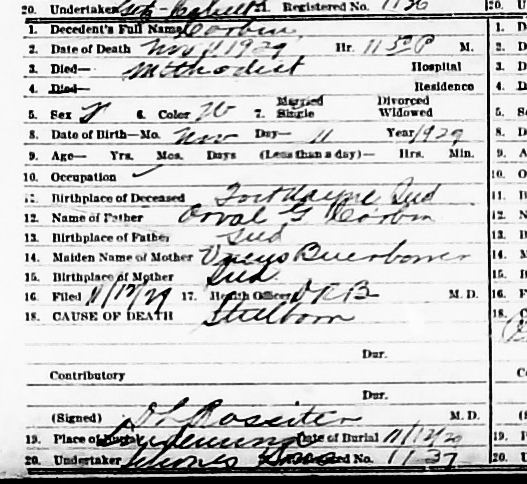 20. Undertaker Registered No. 1136
1. Decedent's Full Name Corbin
2. Date of Death Nov 11 1929 Hr. 11 50 P M.
3. Died— Methodist Hospital
4. Died— Residence
5. Sex F 6. Color W 7. Married Single Divorced Widowed
8. Date of Birth—Mo. Nov Day— 11 Year 1929
9. Age— Yrs. Mos. Days (Less than a day)— Hrs. Min.
10. Occupation
11. Birthplace of Deceased Fort Wayne Ind
12. Name of Father Orval G Corbin
13. Birthplace of Father Ind
14. Maiden Name of Mother
15. Birthplace of Mother Ind
16. Filed 11/12/29 17. Health Officer M. D.
18. CAUSE OF DEATH Stillborn
Dur.
Contributory
Dur.
(Signed) Rossiter M. D.
19. Place of Burial Lindenwood Date of Burial 11/12/29
20. Undertaker Sons Registered No. 1137